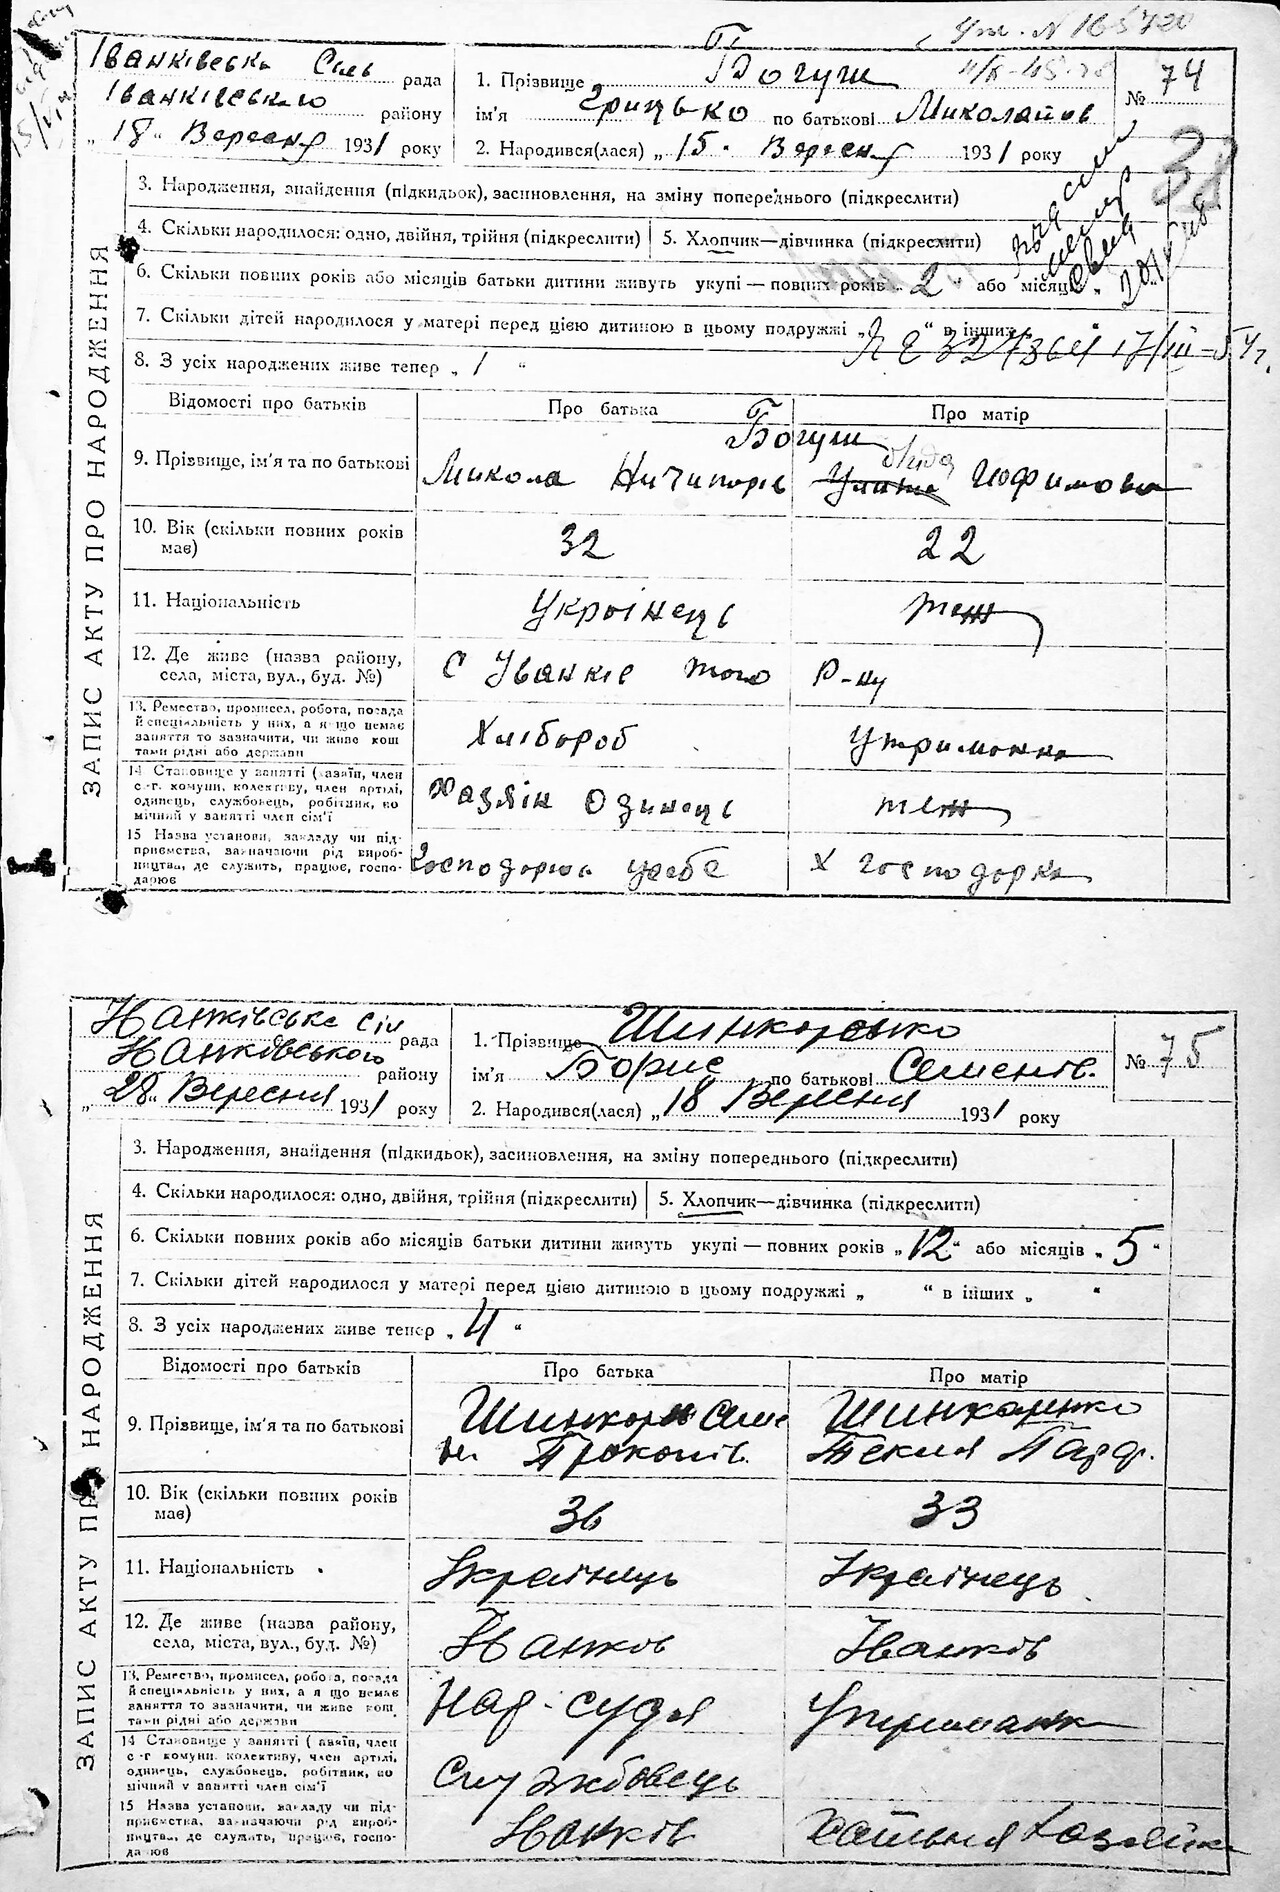 Ут. N 165720
4/X-45
Іванківська Сіль рада
Іванківського району
„ 18 “ Вересня 1931 року
1. Прізвище Богуш
ім'я Грицько по батькові Миколаїов
2. Народився(лася) „ 15 “ Вересня 1931 року
№ 74
38
3. Народження, знайдення (підкидьок), засиновлення, на зміну попереднього (підкреслити)
4. Скільки народилося: одно, двійня, трійня (підкреслити)
5. Хлопчик—дівчинка (підкреслити)
6. Скільки повних років або місяців батьки дитини живуть укупі — повних років „ 2 “ або місяців „
7. Скільки дітей народилося у матері перед цією дитиною в цьому подружжі „ “ в інших
17/III-54 г.
8. З усіх народжених живе тепер „ 1 “
ЗАПИС АКТУ ПРО НАРОДЖЕННЯ
Відомості про батьків
Про батька
Про матір
9. Прізвище, ім'я та по батькові
Богуш
Микола Ничипорів
Юфимовна
10. Вік (скільки повних років має)
32
22
11. Національність
Українець
теж
12. Де живе (назва району, села, міста, вул., буд. №)
С Іванків того
Р-ну
13. Ремество, промисел, робота, посада й спеціяльність у них, а якщо немає заняття то зазначити, чи живе коштами рідні або держави
Хлібороб
утриманка
14 Становище у занятті (хазяїн, член с-г. комуни, колективу, член артілі, одинець, службовець, робітник, помічний у занятті член сім'ї
Хазяїн Одинець
теж
15 Назва установи, закладу чи підприємства, зазначаючи рід виробництва, де служить, працює, господарює
Господарює усебе
Х господарка
Іванківська Сіл рада
Іванковського району
„ 28 “ Вересня 1931 року
1. Прізвище Шинкаренко
ім'я Борис по батькові Семенів.
2. Народився(лася) „ 18 Вересня 1931 року
№ 75
3. Народження, знайдення (підкидьок), засиновлення, на зміну попереднього (підкреслити)
4. Скільки народилося: одно, двійня, трійня (підкреслити)
5. Хлопчик—дівчинка (підкреслити)
6. Скільки повних років або місяців батьки дитини живуть укупі — повних років „ 12 “ або місяців „ 5 “
7. Скільки дітей народилося у матері перед цією дитиною в цьому подружжі „ “ в інших „ “
8. З усіх народжених живе тепер „ 4 “
ЗАПИС АКТУ ПРО НАРОДЖЕННЯ
Відомості про батьків
Про батька
Про матір
9. Прізвище, ім'я та по батькові
Семе
Прокопів.
Шинкаренко
Текля Парф.
10. Вік (скільки повних років має)
36
33
11. Національність
Українець
Українець
12. Де живе (назва району, села, міста, вул., буд. №)
Іванков
Іванків
13. Ремество, промисел, робота, посада й спеціяльність у них, а якщо немає заняття то зазначити, чи живе коштами рідні або держави
Нар-судя
Утриманк
14 Становище у занятті (хазяїн, член с-г комуни, колективу, член артілі, одинець, службовець, робітник, помічний у занятті член сім'ї
Службовець
15 Назва установи, закладу чи підприємства, зазначаючи рід виробництва, де служить, працює, господарює
Іванків
Хатьня хазяйка